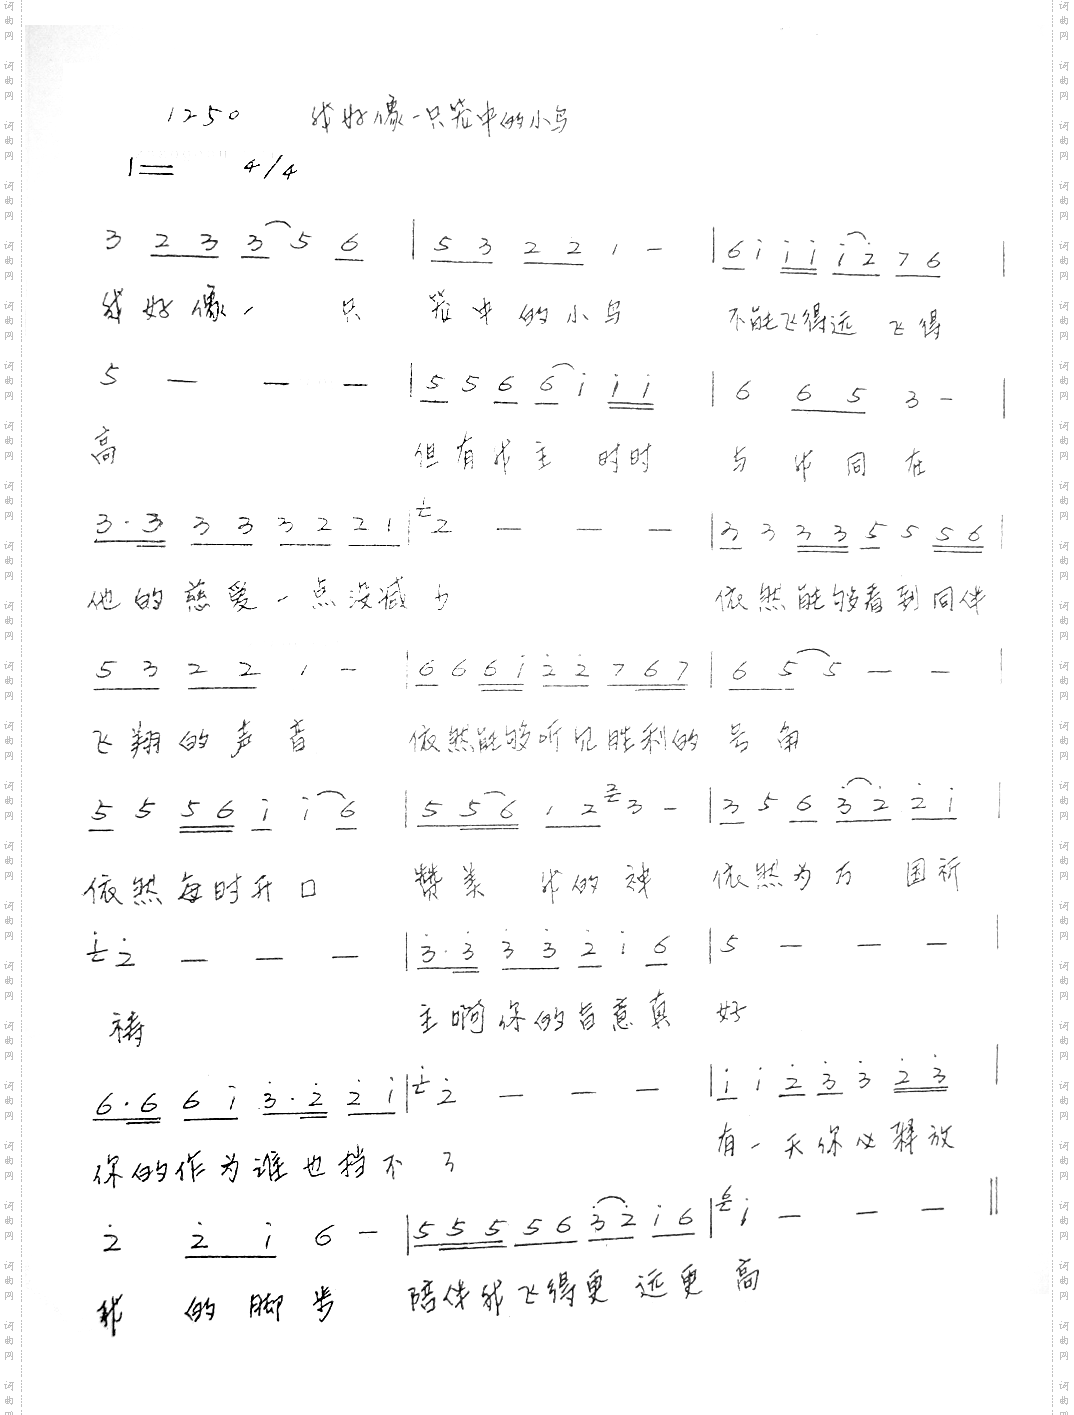 1250 我好像一只笼中的小鸟
1= 4/4
3 2 3 3 5 6 | 5 3 2 2 1 — | 6 i i i i 2 7 6 |
我好像一 只 笼中的小鸟 不能飞得远 飞得
5 — — — | 5 5 6 6 i i i | 6 6 5 3 — |
高 但有我主 时时 与我同在
3 · 3 3 3 3 2 2 1 | 1 2 — — — | 3 3 3 3 5 5 5 6 |
他的慈爱一点没减少 依然能够看到同伴
5 3 2 2 1 — | 6 6 6 i 2 2 7 6 7 | 6 5 5 — — |
飞翔的声音 依然能够听见胜利的 号角
5 5 5 6 i i 6 | 5 5 6 1 2 2 3 — | 3 5 6 3 2 2 i |
依然每时开口 赞美 我的神 依然为万 国祈
i 2 — — — | 3 · 3 3 3 2 i 6 | 5 — — —
祷 主啊你的旨意真 好
6 · 6 6 i 3 · 2 2 i | i 2 — — — | i i 2 3 3 2 3 |
你的作为谁也挡不 了 有一天你必释放
2 2 i 6 — | 5 5 5 5 6 3 2 i 6 | 6 i — — — ‖
我 的脚步 陪伴我飞得更 远更 高
词曲网